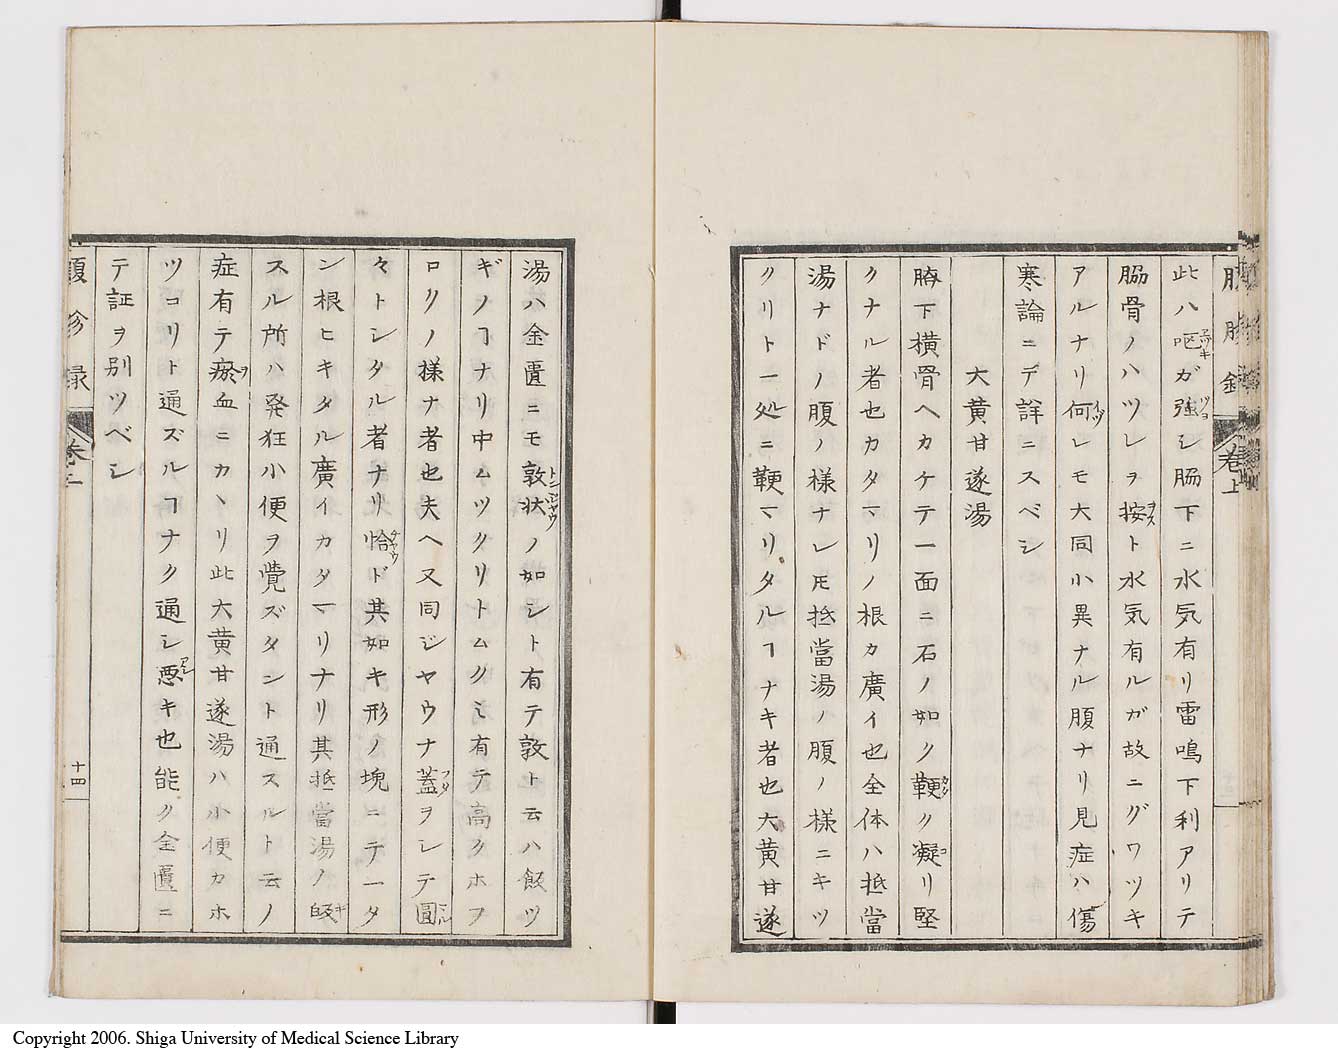 此ハ呕ヱヅキガ強ツヨシ脇下ニ水気有リ雷鳴下利アリテ
脇骨ノハツレヲ按ヲスト水気有ルガ故ニグワツキ
アルナリ何イヅレモ大同小異ナル腹ナリ見症ハ傷
寒論ニテ詳ニスベシ
大黄甘遂湯
臍下横骨ヘカケテ一面ニ石ノ如ク鞕カタク凝コリ堅
クナル者也カタマリノ根カ廣イ也全体ハ抵當
湯ナドノ腹ノ様ナレ𪜈抵當湯ノ腹ノ様ニキツ
クリト一処ニ鞕マリタルヿナキ者也大黄甘遂
湯ハ金匱ニモ敦状トンジャウノ如シト有テ敦ト云ハ飯ツ
ギノヿナリ中ムツクリトムクミ有テ高クホヲ
ロリノ様ナ者也夫ヘ又同ジヤウナ蓋フタヲシテ圓マル
々トシタル者ナリ恰チヤウド其如キ形ノ塊ニテ一タ
ン根ヒキタル廣イカタマリナリ其抵當湯ノ
スル所ハ発狂小便ヲ覚ズタント通スルト云ノ
症有テ瘀ヲ血ニカヽリ此大黄甘遂湯ハ小便カホ
ツコリト通ズルヿナク通シ悪アシキ也能ク金匱ニ
テ証ヲ別ツベシ
腹診録
巻上
十四
巻上
Copyright 2006. Shiga University of Medical Science Library